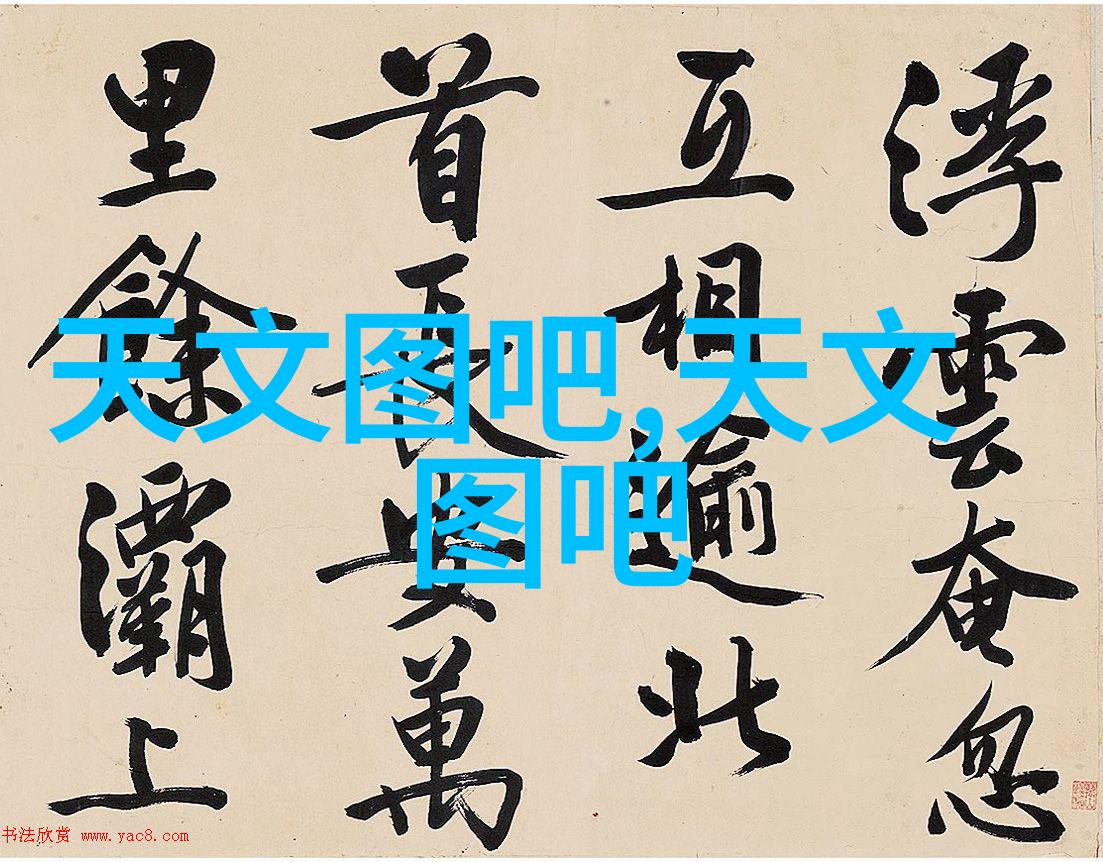 浮雲奄忽
互相逾北
首長安萬
里餘灞上
天文图吧,天文
图吧
书法欣赏 www.yac8.com